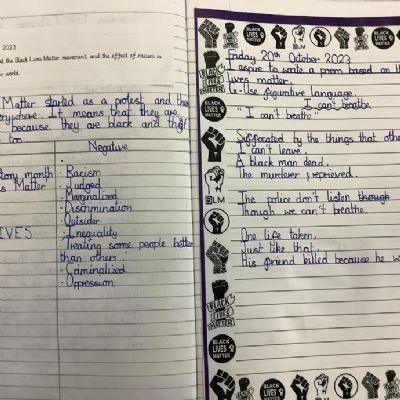 2023
d the Black Lives Matter movement, and the effect of racism in
ur world.
Matter started as a protest and the
rywhere. It means that they are
because they are black and that
too.
Negative
tory month
s Matter
IVES
· Racism
· Judged
· Marginalized
· Discrimination
· Outsider
· Inequality
· Treating some people better
than others
· Caminalized
· Opression
Friday 20th October 2023
I aspire to write a poem based on th
lives matter.
G-Use figurative language.
I can't breathe
"I can't breathe"
Suffocated by the things that othe
I can't leave.
A black man dead.
The murderer reprieved.
The police don't listen though
Though we can't breathe.
One life taken,
Just like that.
His friend killed because he w
BLACK
LIVES
MATTER
BLM
BLACK
LIVES
MATTER
BLACK
LIVES
MATTER
BLM
BLACK
LIVES
MATTER
BLACK
LIVES
MATTER